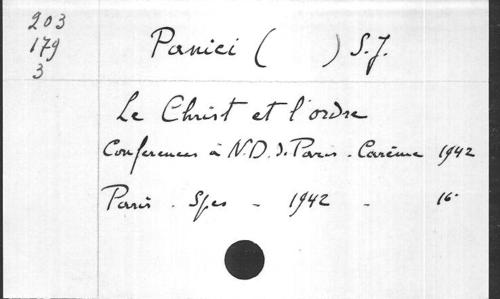 203
179
3
Panici ( ) S.J.
Le Christ et l'ordre
Conferences à N.D. de Paris - Carême 1942
Paris - Spes - 1942 - 16°